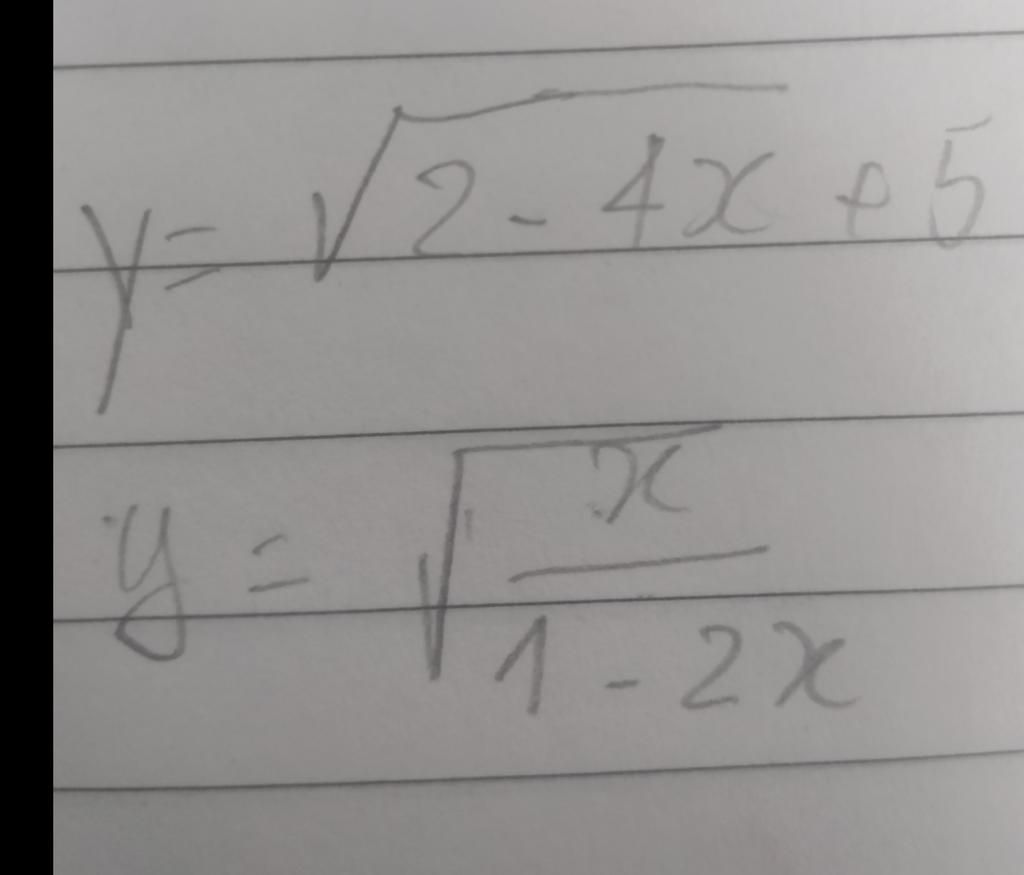 y = √(2 - 4x) + 5
y = √(x / (1 - 2x))